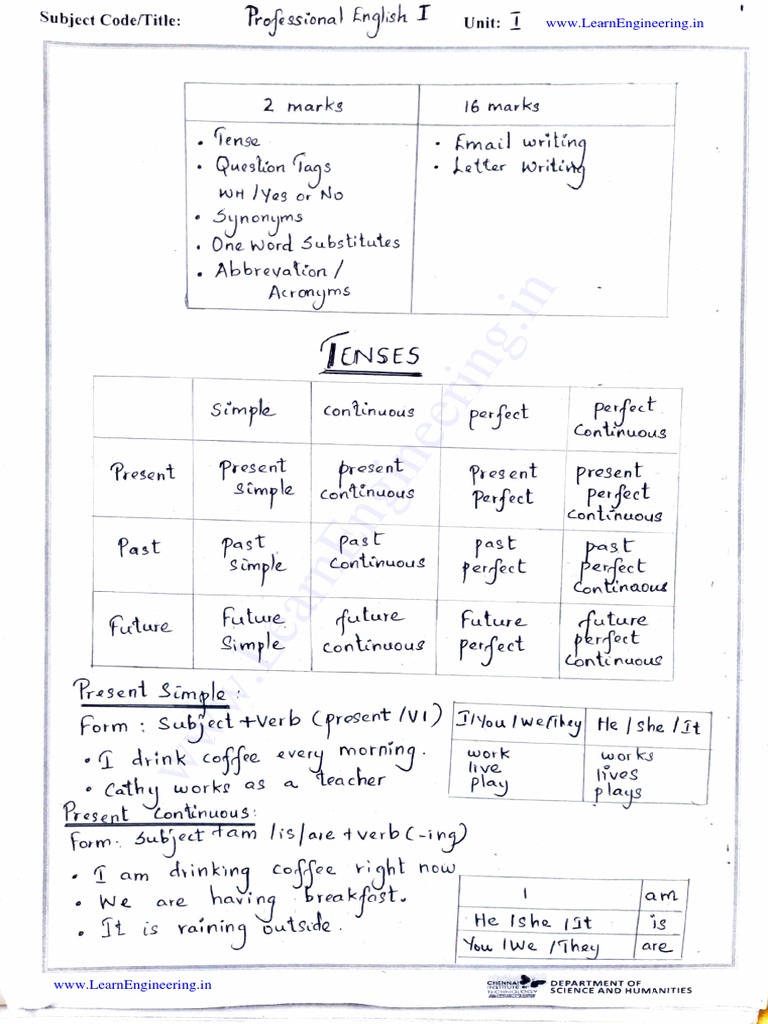 Subject Code/Title: Professional English I Unit: I www.LearnEngineering.in
2 marks 16 marks
• Tense • Email writing
• Question Tags • Letter Writing
WH / Yes or No
• Synonyms
• One Word Substitutes
• Abbrevation /
Acronyms
TENSES
Simple continuous perfect perfect
Continuous
Present Present present Present present
Simple continuous Perfect perfect
continuous
Past Past Past past past
Simple Continuous perfect perfect
Continaous
Future Future future Future future
Simple continuous perfect perfect
Continuous
Present Simple:
Form : Subject + Verb (present /V1) I/You/We/They He / She / It
• I drink coffee every morning. work works
live lives
• Cathy works as a teacher play plays
Present Continuous:
Form: Subject + am / is / are + verb (-ing)
• I am drinking coffee right now
• We are having breakfast. I am
• It is raining outside. He / she / It is
You / We / They are
www.LearnEngineering.in
www.LearnEngineering.in CHENNAI INSTITUTE OF TECHNOLOGY DEPARTMENT OF
SCIENCE AND HUMANITIES